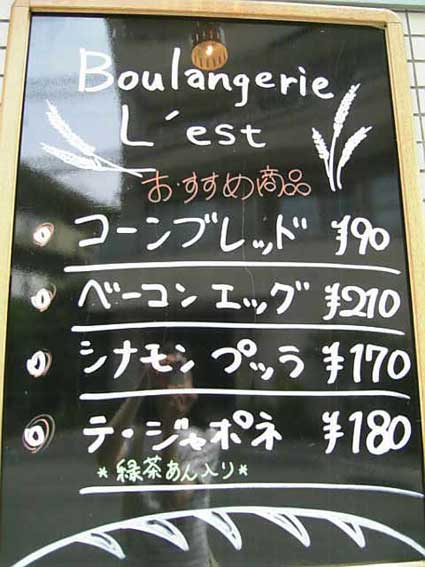 Boulangerie
L'est
おすすめ商品
コーンブレッド ¥90
ベーコンエッグ ¥210
シナモン プッラ ¥170
テ・ジャポネ ¥180
*緑茶あん入り*